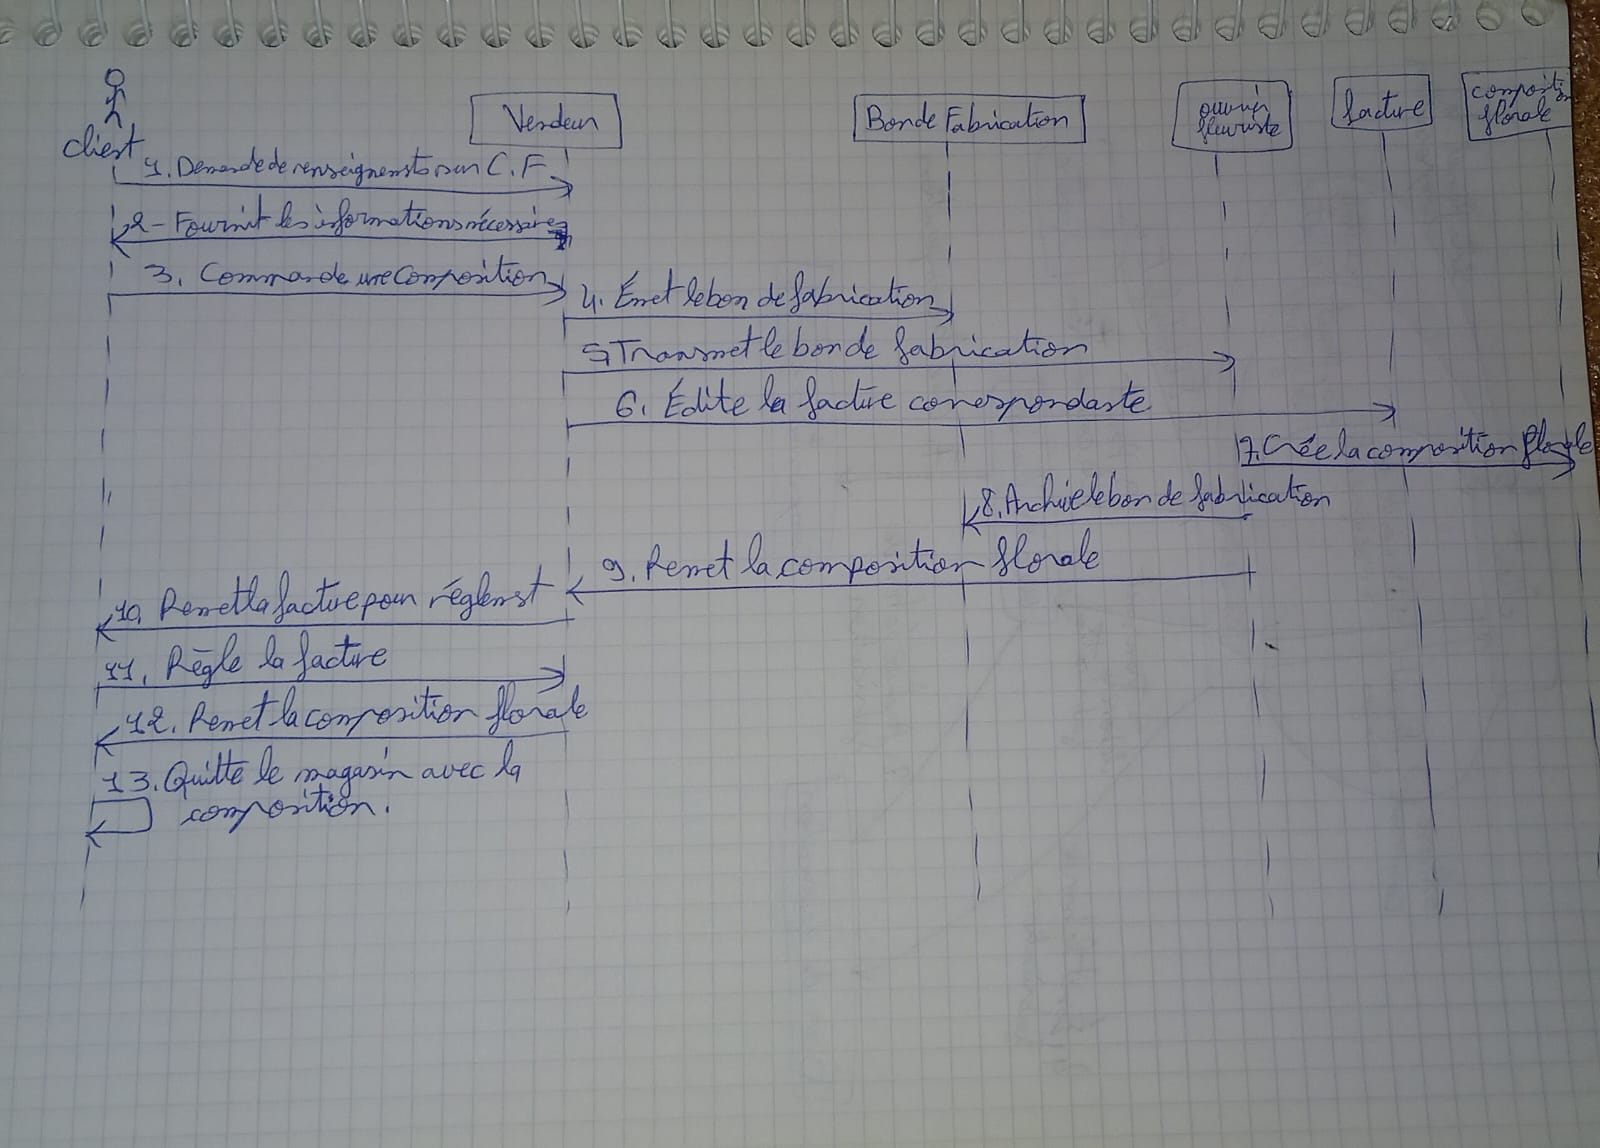 client
Vendeur
Bon de Fabrication
ouvrier
fleuriste
facture
compositi
on
florale
1. Demande de renseignemets sur C.F
2- Fournit les informations nécessaires
3. Commande une composition
4. Émet le bon de fabrication
5 Transmet le bon de fabrication
6. Édite la facture correspondante
7. Crée la composition florale
8. Archive le bon de fabrication
9. Remet la composition florale
10. Remet la facture pour réglemet
11. Règle la facture
12. Remet la composition florale
13. Quitte le magasin avec la
composition.